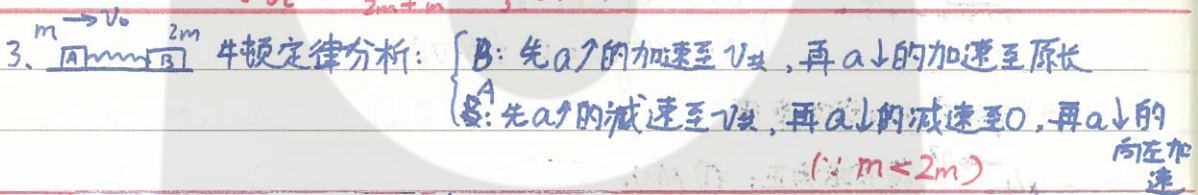 3. m → v₀ A B 2m 牛顿定律分析: { B: 先a↑的加速至v共, 再a↓的加速至原长
A: 先a↑的减速至v共, 再a↓的减速至0, 再a↓的
向左加
速
(∵ m<2m)